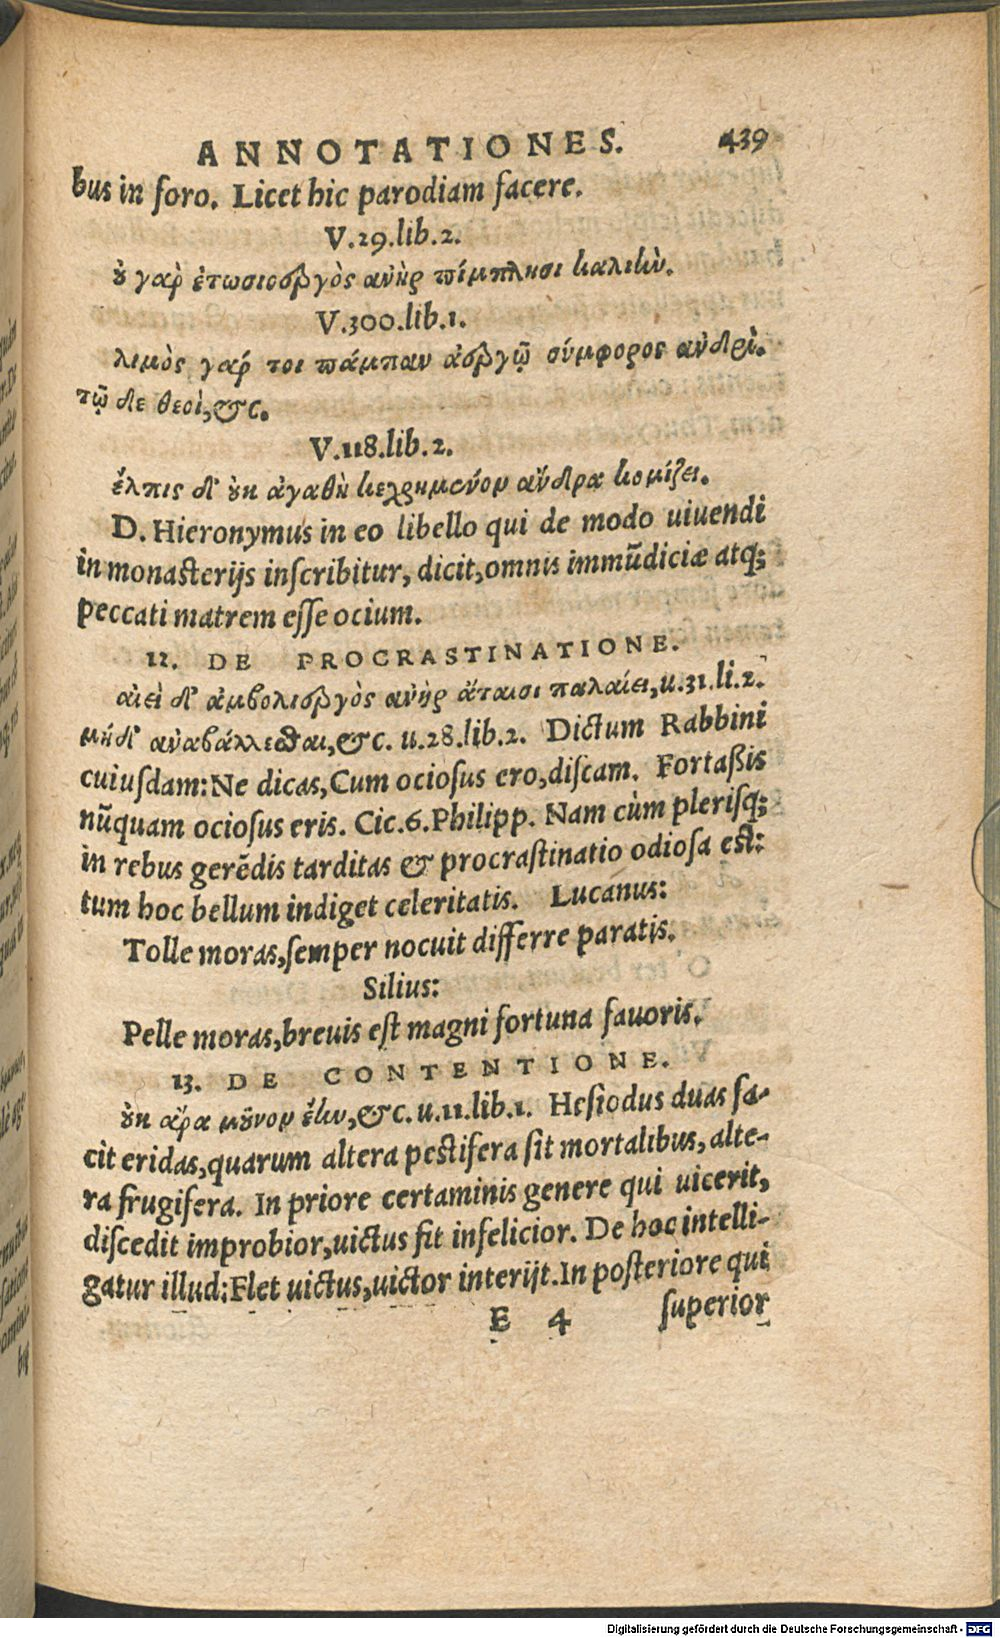 ANNOTATIONES. 439
bus in foro. Licet hic parodiam facere.
V.29.lib.2.
ȣ̓ γαρ̀ ἐτωσιοεργὸς ανὴρ πίμπλησι καλιὴν.
V.300.lib.1.
λιμὸς γαρ́ τοι πάμπαν ἀεργῷ σύμφορος ανδρὶ.
τῷ δε θεοὶ,&c.
V.118.lib.2.
ἐλπις δ' ȣ̓κ αγαθὴ κεχρημένον ἄνδρα κομίζει.
D. Hieronymus in eo libello qui de modo uiuendi
in monasterijs inscribitur, dicit,omnis immũdiciæ atq;
peccati matrem esse ocium.
12. DE PROCRASTINATIONE.
αιεὶ δ' ἀμβολιεργὸς ανὴρ ἄταισι παλαίει,u.31.li.2.
μηδ' αναβάλλεσθαι,&c. u.28.lib.2. Dictum Rabbini
cuiusdam:Ne dicas,Cum ociosus ero,discam. Fortaßis
nũquam ociosus eris. Cic.6.Philipp. Nam cùm plerisq;
in rebus gerẽdis tarditas & procrastinatio odiosa est:
tum hoc bellum indiget celeritatis. Lucanus:
Tolle moras,semper nocuit differre paratis.
Silius:
Pelle moras,breuis est magni fortuna fauoris.
13. DE CONTENTIONE.
ȣ̓κ ἄρα μȣ͂νον ἔην,&c.u.11.lib.1. Hesiodus duas fa-
cit eridas,quarum altera pestifera sit mortalibus,alte-
ra frugifera. In priore certaminis genere qui uicerit,
discedit improbior,uictus fit infelicior. De hoc intelli-
gatur illud:Flet uictus,uictor interijt.In posteriore qui
E 4 superior
Digitalisierung gefördert durch die Deutsche Forschungsgemeinschaft - DFG